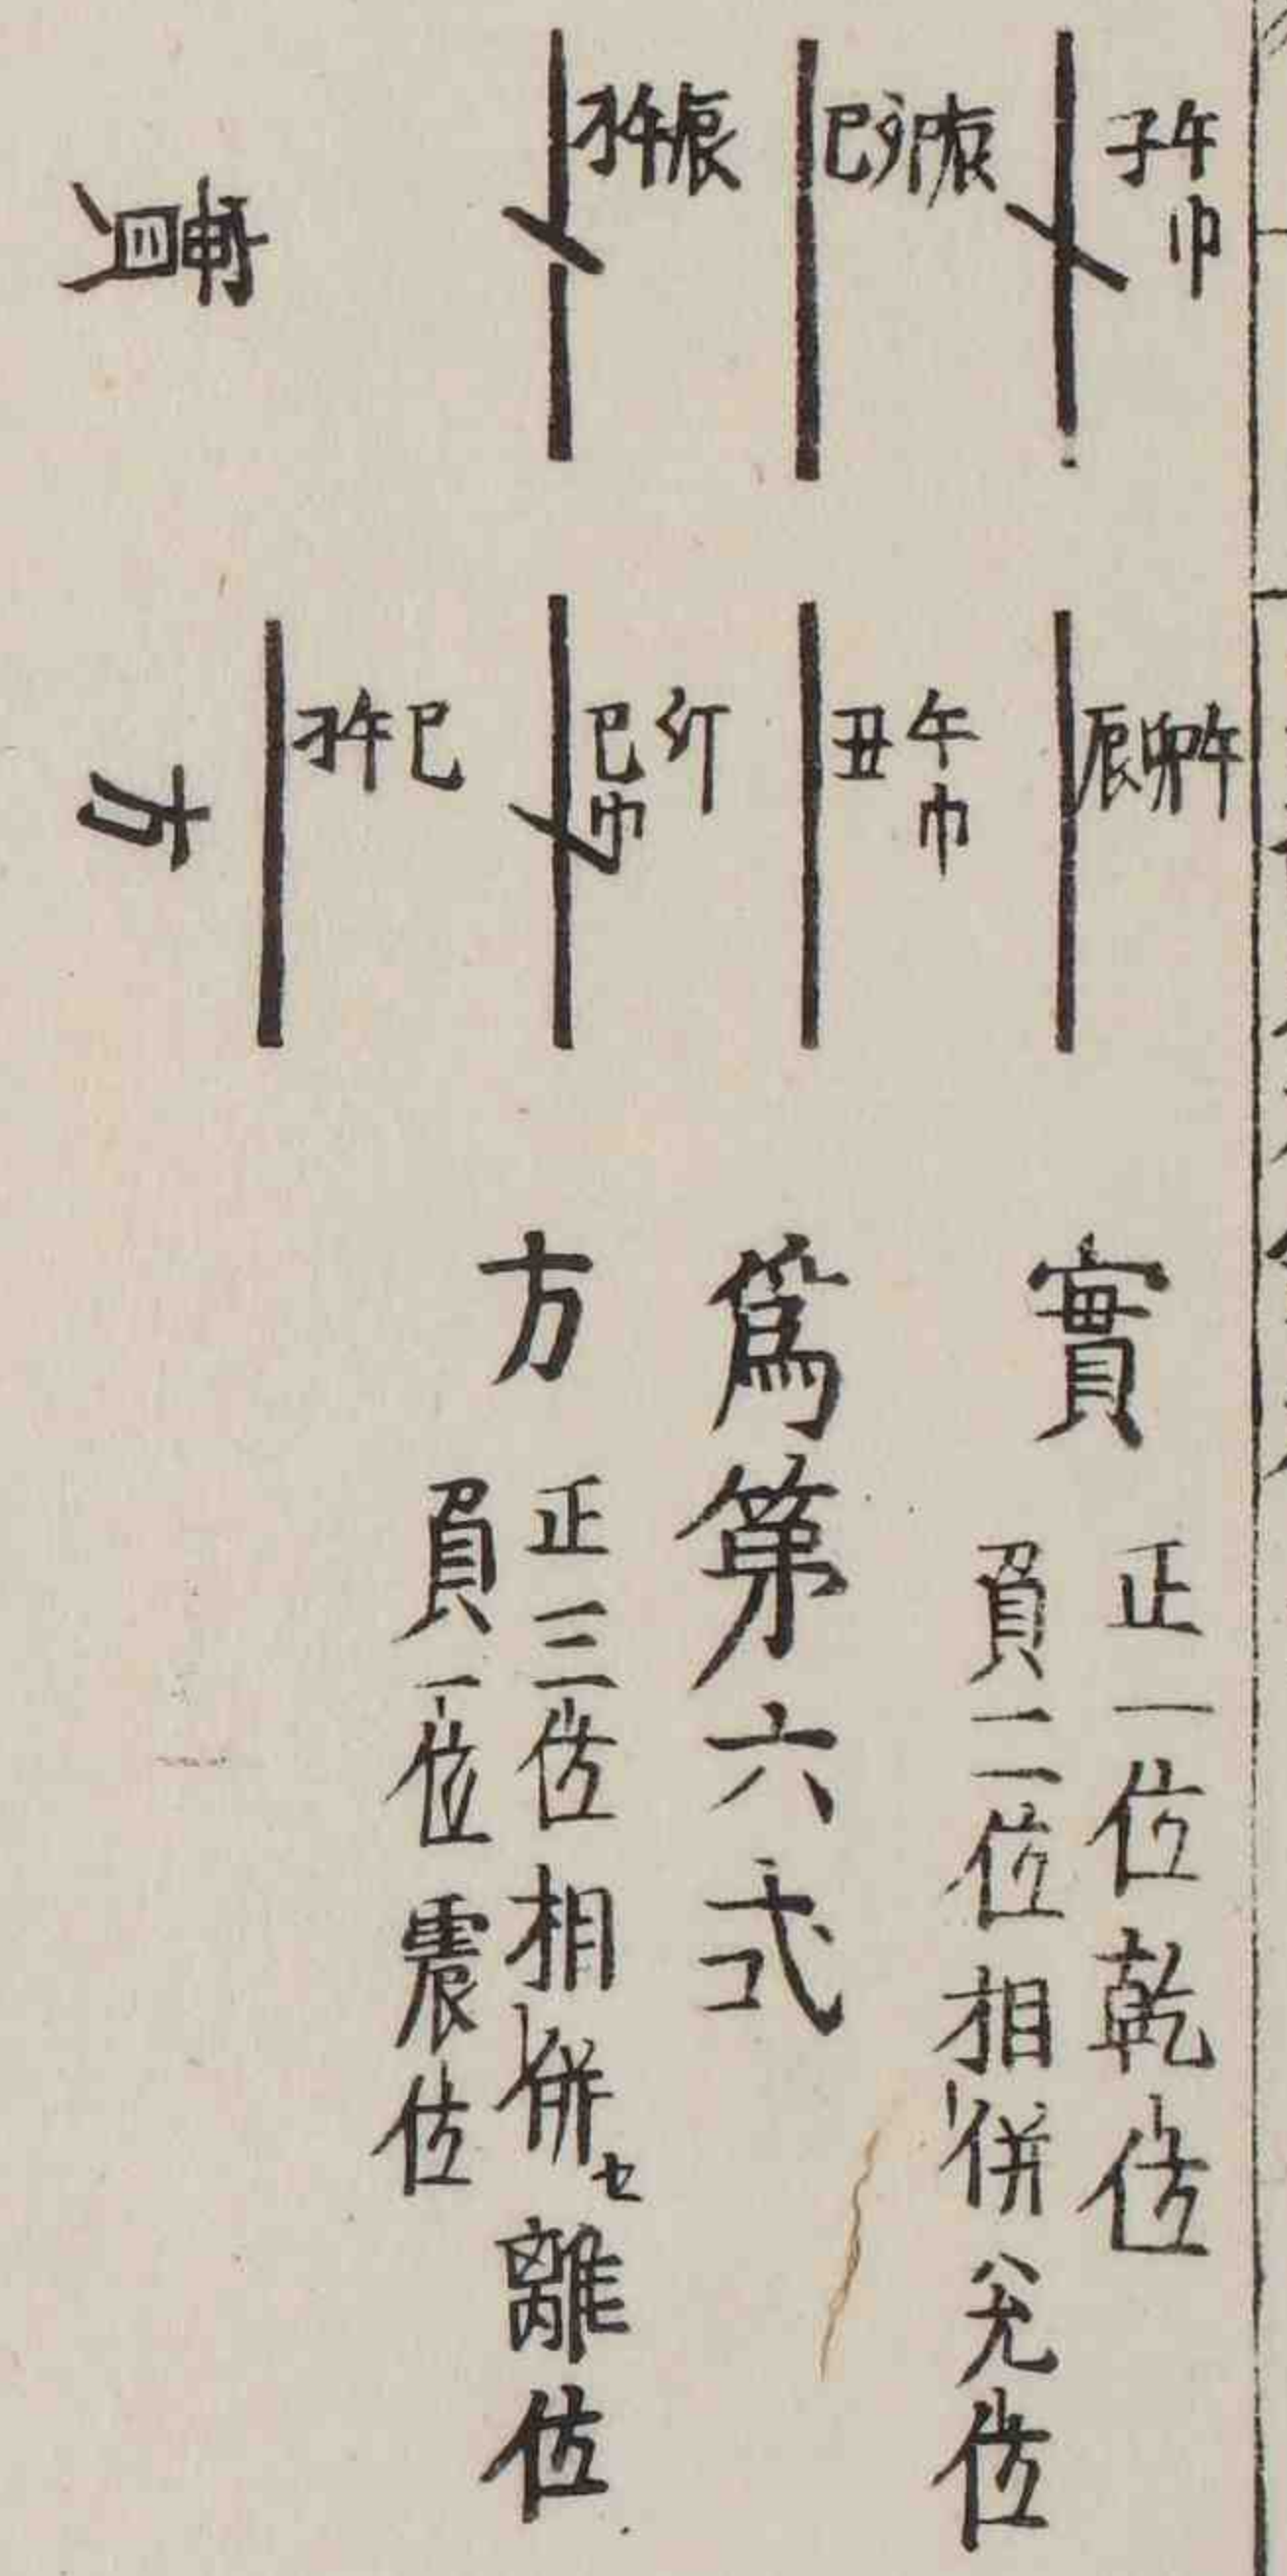 子午巾
巳夘辰
子午辰
實
辰卯午
丑午巾
巳夘巾
子午巳
方
實
正一位乾位
負二位相併兊位
爲第六式
方
正三位相併セ離位
負一位震位